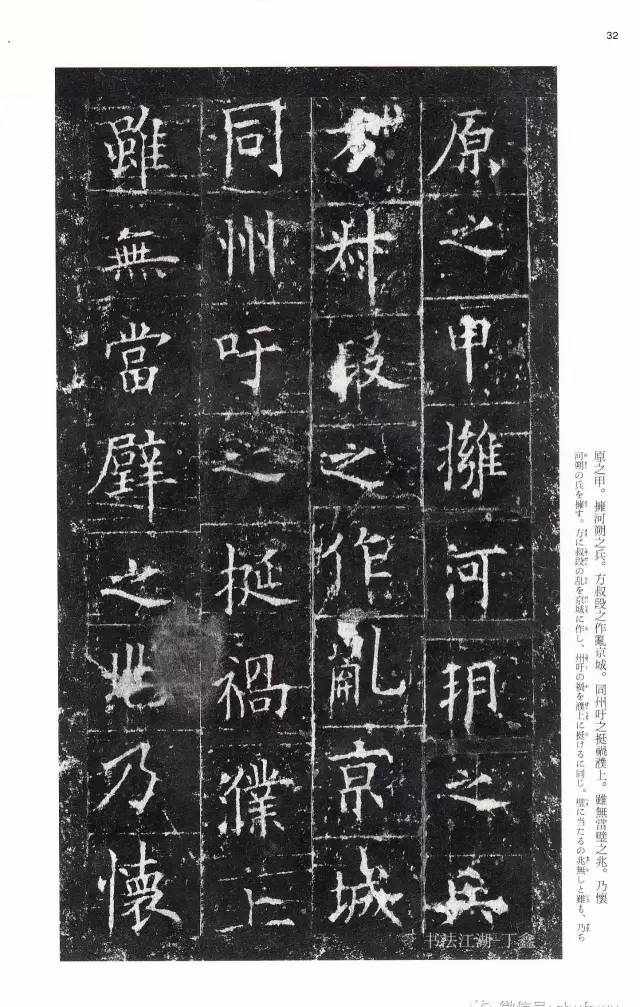 32
原之甲擁河朔之兵
方叔段之作亂京城
同州吁之挻禍濮上
雖無當璧之兆乃懷
原之甲。擁河朔之兵。方叔段之作亂京城。同州吁之挻禍濮上。雖無當璧之兆。乃懷
河朔の兵を擁す。方に叔段の乱を京城に作し、州吁の禍を濮上に挻けるに同じ。璧に当たるの兆無しと雖も、乃ち
书法江湖-丁鑫